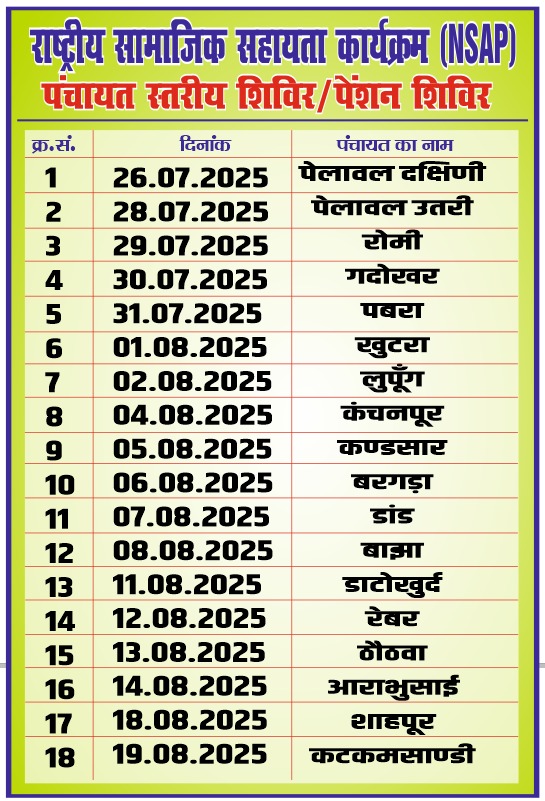 राष्ट्रीय सामाजिक सहायता कार्यक्रम (NSAP)
पंचायत स्तरीय शिविर/पेंशन शिविर
क्र.सं. दिनांक पंचायत का नाम
1 26.07.2025 पेलावल दक्षिणी
2 28.07.2025 पेलावल उतरी
3 29.07.2025 रोमी
4 30.07.2025 गदोखर
5 31.07.2025 पबरा
6 01.08.2025 खुटरा
7 02.08.2025 लुपूँग
8 04.08.2025 कंचनपूर
9 05.08.2025 कण्डसार
10 06.08.2025 बरगड़ा
11 07.08.2025 डांड
12 08.08.2025 बाझा
13 11.08.2025 डाटोखुर्द
14 12.08.2025 रेबर
15 13.08.2025 ठौठवा
16 14.08.2025 आराभुसाई
17 18.08.2025 शाहपूर
18 19.08.2025 कटकमसाण्डी